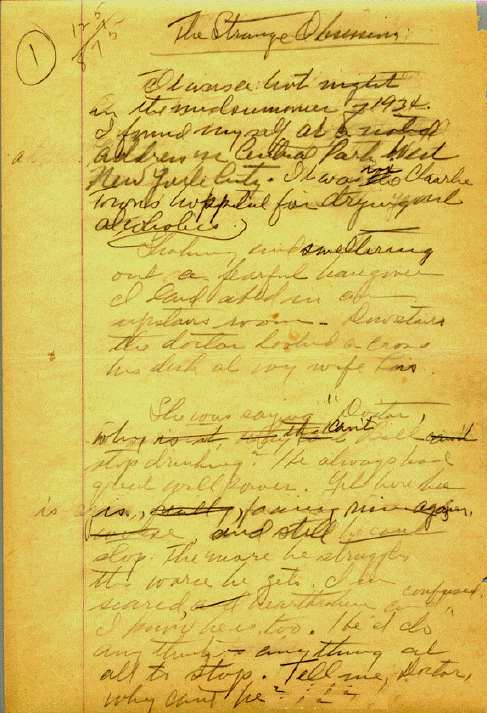 1
The Strange Obsession
It was a hot night
in the midsummer of 1934.
I found myself at a noted
address in Central Park West
New York City. It was the Charlie
Towns hospital for drying out
alcoholics.
and sweltering
out a fearful hangover
I laid abed in an
upstairs room. Downstairs
the doctor looked across
his desk at my wife Lois.
She was saying "Doctor,
why is it, why can't Bill
stop drinking? He always had
great will power. Yet here he
is again,
and still he can't
stop. The more he struggles
the worse he gets. I'm
scared, and heartbroken and confused.
I know he is, too. He'd do
anything - anything at
all to stop. Tell me, Doctor,
why can't he?